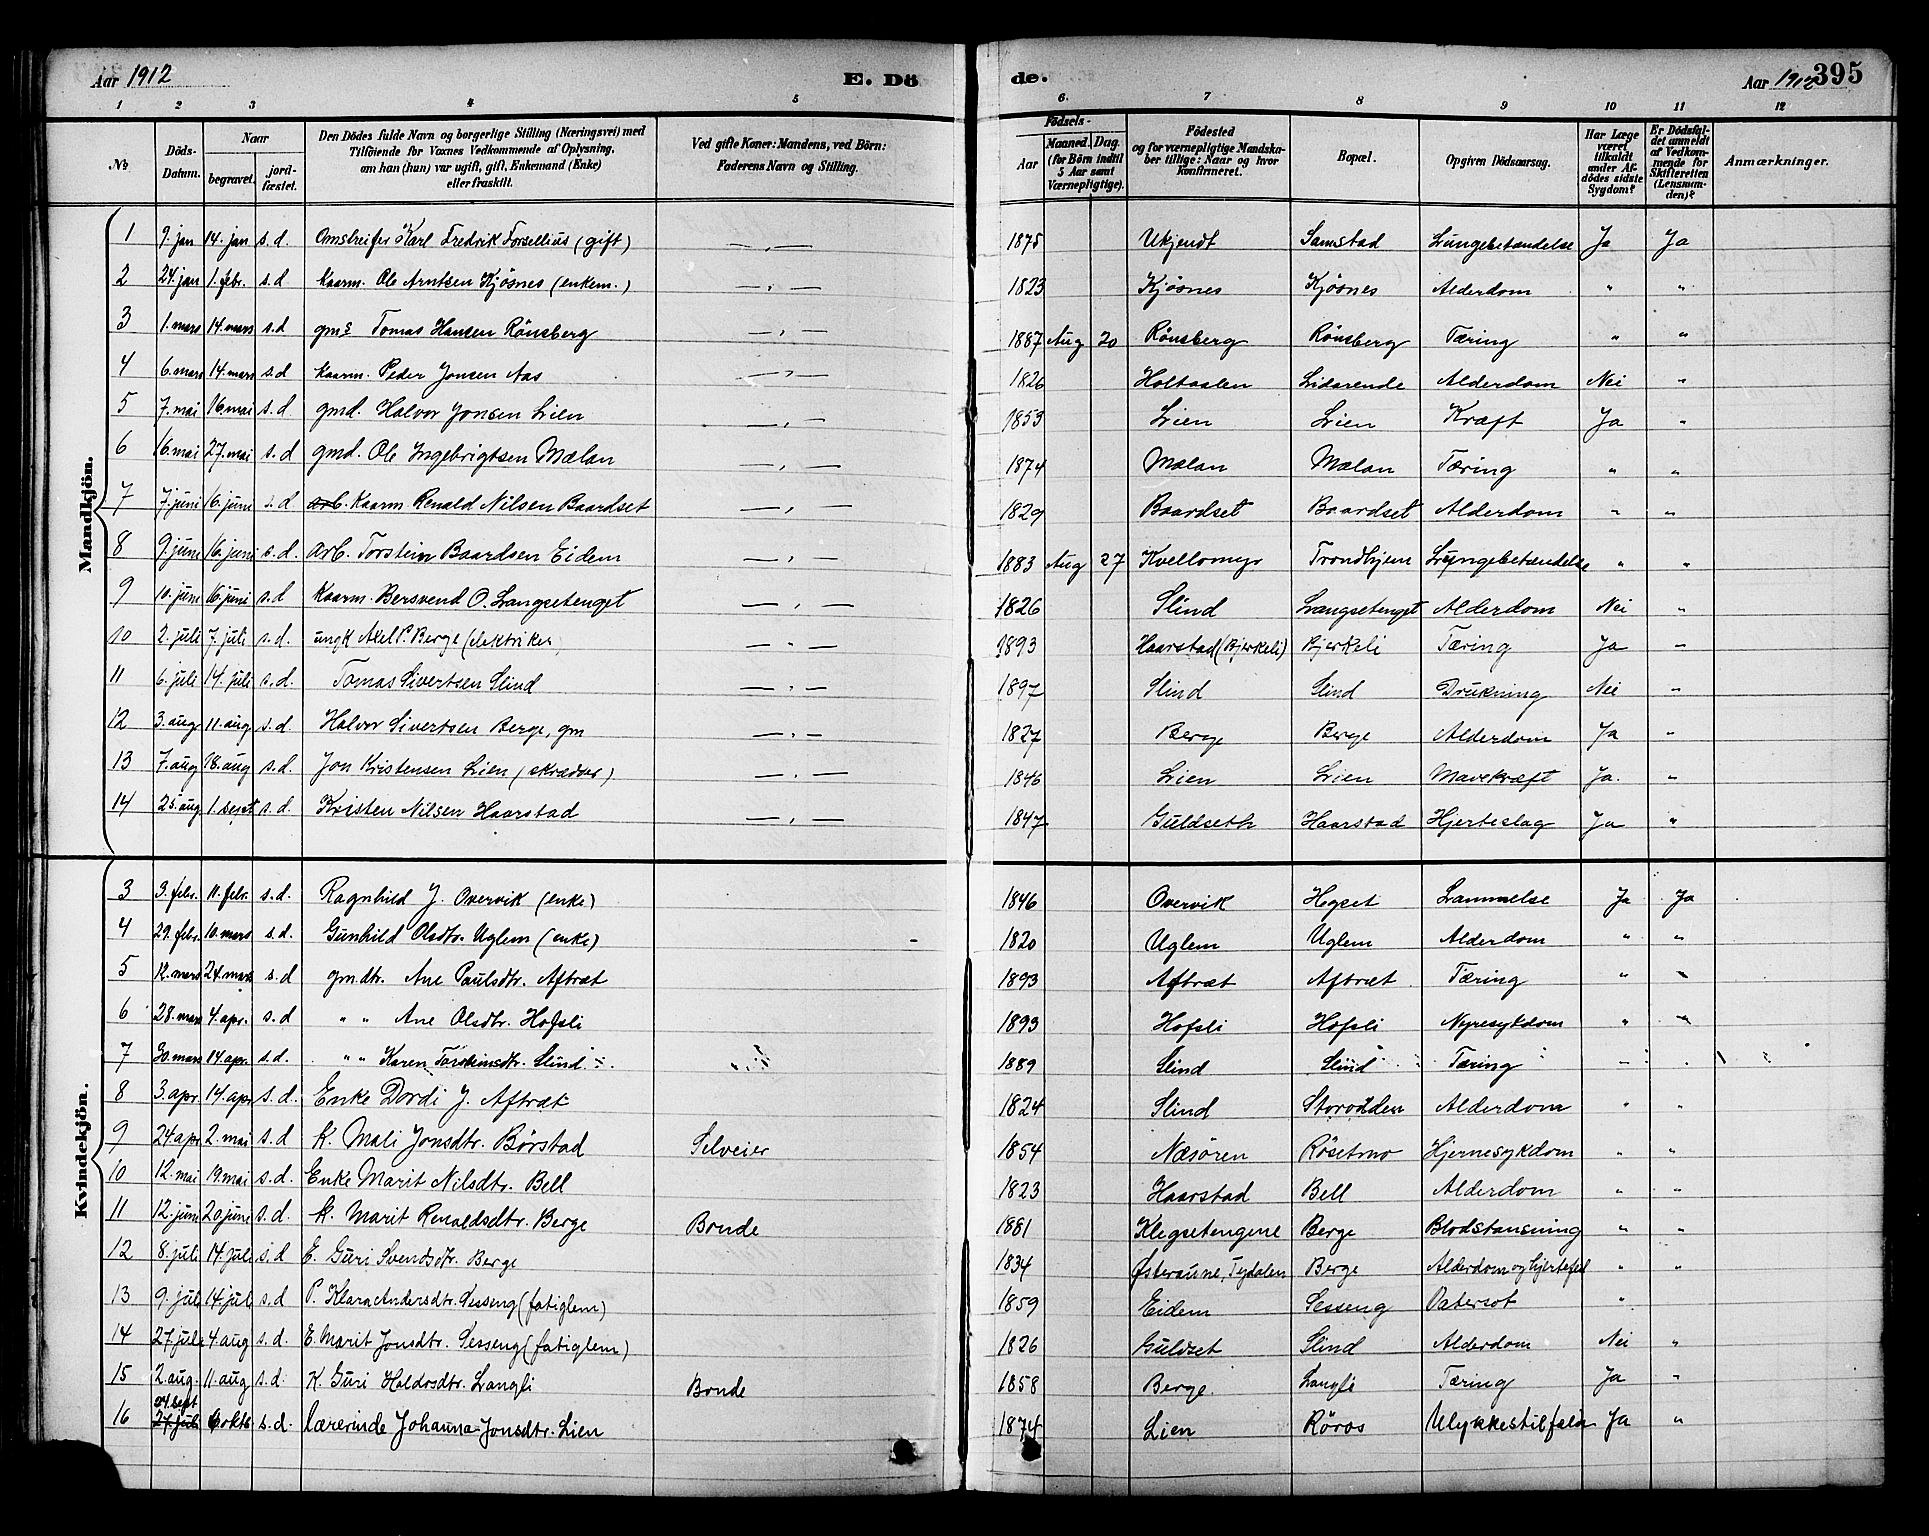 Aar 1912 E. Dö de. Aar 1912 395
1 2 3 4 5 6. 7 8 9 10 11 12
No. Döds-Datum. Naar begravet. jordfæstet. Den Dödes fulde Navn og borgerlige Stilling (Næringsvei) med Tilföiende for Voxnes Vedkommende af Oplysning, om han (hun) var ugift, gift, Enkemand (Enke) eller fraskilt. Ved gifte Koner: Mandens, ved Börn: Faderens Navn og Stilling. Födsels- Aar Maaned. Dag. (for Börn indtil 5 Aar samt Værnepligtige). Födested og for værnepligtige Mandskaber tillige: Naar og hvor konfirmeret. Bopæl. Opgiven Dödsaarsag. Har Læge været tilkaldt under Afdödes sidste Sygdom? Er Dödsfaldet anmeldt af Vedkommende for Skifteretten (Lensmanden)? Anmærkninger.
Mandkjön.
1 9. jan 14. jan s. d. Omstreifer Karl Fredrik Forsellius (gift) — „ — 1875 Ukjendt Samstad Lungebetændelse Ja Ja
2 24. jan 1. febr. s. d Kaarm. Ole Arntsen Kjösnes (enkem.) — „ — 1823 Kjösnes Kjösnes Alderdom „ „
3 1. mars 14. mars s. d gms Tomas Hansen Rönsberg — „ — 1887 Aug 20 Rönsberg Rönsberg Tæring „ „
4 6. mars 14. mars s. d Kaarm. Peder Jonsen Aas — „ — 1826 Holtaalen Lidarende Alderdom Nei „
5 7. mai 16. mai s. d gmd. Halvor Jonsen Lien — „ — 1853 Lien Lien Kræft Ja „
6 16. mai 27. mai s. d gmd. Ole Ingebrigtsen Mælan — „ — 1874 Mælan Mælan Tæring „ „
7 7. juni 16. juni s. d arb. Kaarm Renald Nilsen Baardset — „ — 1829 Baardset Baardset Alderdom „ „
8 9. juni 16. juni s. d. arb. Torstein Baardsen Eidem — „ — 1883 Aug 27 Kvellomyr Trondhjem Lungebetændelse „ „
9 10. juni 16. juni s. d Kaarm. Bersvend O. Langsetenget — „ — 1826 Slind Langsetenget Alderdom Nei „
10 2. juli 7. juli s. d. ungk Axel P. Berge (elektriker) — „ — 1893 Haarstad (Bjerkeli) Bjerkeli Tæring Ja „
11 6. juli 14. juli s. d. Tomas Sivertsen Slind — „ — 1897 Slind Slind Drukning Nei „
12 3. aug 11. aug s. d. Halvor Sivertsen Berge, gm — „ — 1827 Berge Berge Alderdom Ja „
13 7. aug 18. aug s. d. Jon Kristensen Lien (skrædder) — „ — 1846 Lien Lien Mavekræft Ja. „
14 25. aug 1. sept s. d. Kristen Nilsen Haarstad — „ — 1847 Guldseth Haarstad Hjerteslag Ja „
Kvindekjön.
3 3. febr. 11. febr. s. d. Ragnhild J. Overvik (enke) 1846 Overvik Hegset Lammelse Ja Ja
4 29. febr. 10. mars s. d. Gunhild Olsdtr. Uglem (enke) 1820 Uglem Uglem Alderdom „ „
5 12. mars 24. mars s. d gmdtr. Ane Paulsdtr. Aftræt 1893 Aftræt Aftræt Tæring „ „
6 28. mars 4. apr. s. d „ „ Ane Olsdtr. Hofsli 1893 Hofsli Hofsli Nyresykdom „ „
7 30. mars 14. apr. s. d. „ „ Karen Torsteinsdtr. Slind 1889 Slind Slind Tæring
8 3. apr 14. apr s. d. Enke Dordi J. Aftræt 1824 Slind Storodden Alderdom „ „
9 24 apr 2. mai s. d K. Mali Jonsdtr. Börstad Selveier 1854 Næsören Rösetmo Hjernesykdom „ „
10 12. mai 19. mai s. d Enke Marit Nilsdtr. Bell 1823 Haarstad Bell Alderdom „ „
11 12. juni 20 june s. d. K. Marit Renaldsdtr. Berge Bonde 1881 Klegsetengene Berge Blodstansning „ „
12 8. juli 14. jul s. d E. Guri Svendsdtr. Berge 1834 Østeraune, Tydalen Berge Alderdom og hjertefeil „ „
13 9. jul 14. jul s. d P. Klara Andersdtr. Sesseng (fatiglem) 1859 Eidem Sesseng Vatersot „
14 27. juli 4 aug s. d. E. Marit Jonsdtr. Sesseng (fatiglem) 1826 Guldset Slind Alderdom Nei „
15 2. aug. 11. aug s. d. K Guri Haldosdtr. Langli Bonde 1858 Berge. Langli Tæring Ja „
16 24. sept 27. juli 6 oktb. s. d. Lærerinde Johanna Jonsdtr. Lien 1874 Lien Röros Ulykkestilfelde Ja „